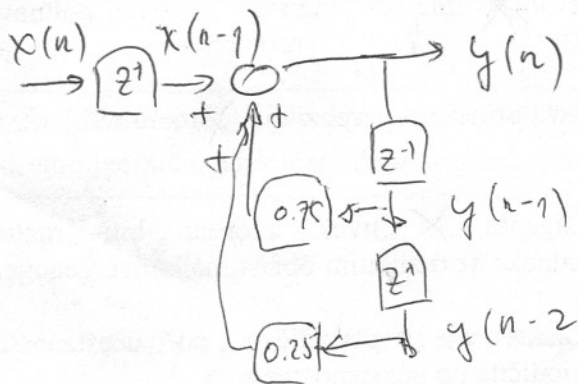 x(n) x(n-1) y(n)
z⁻¹
+ +
+
z⁻¹
0.75 y(n-1)
z⁻¹
0.25 y(n-2